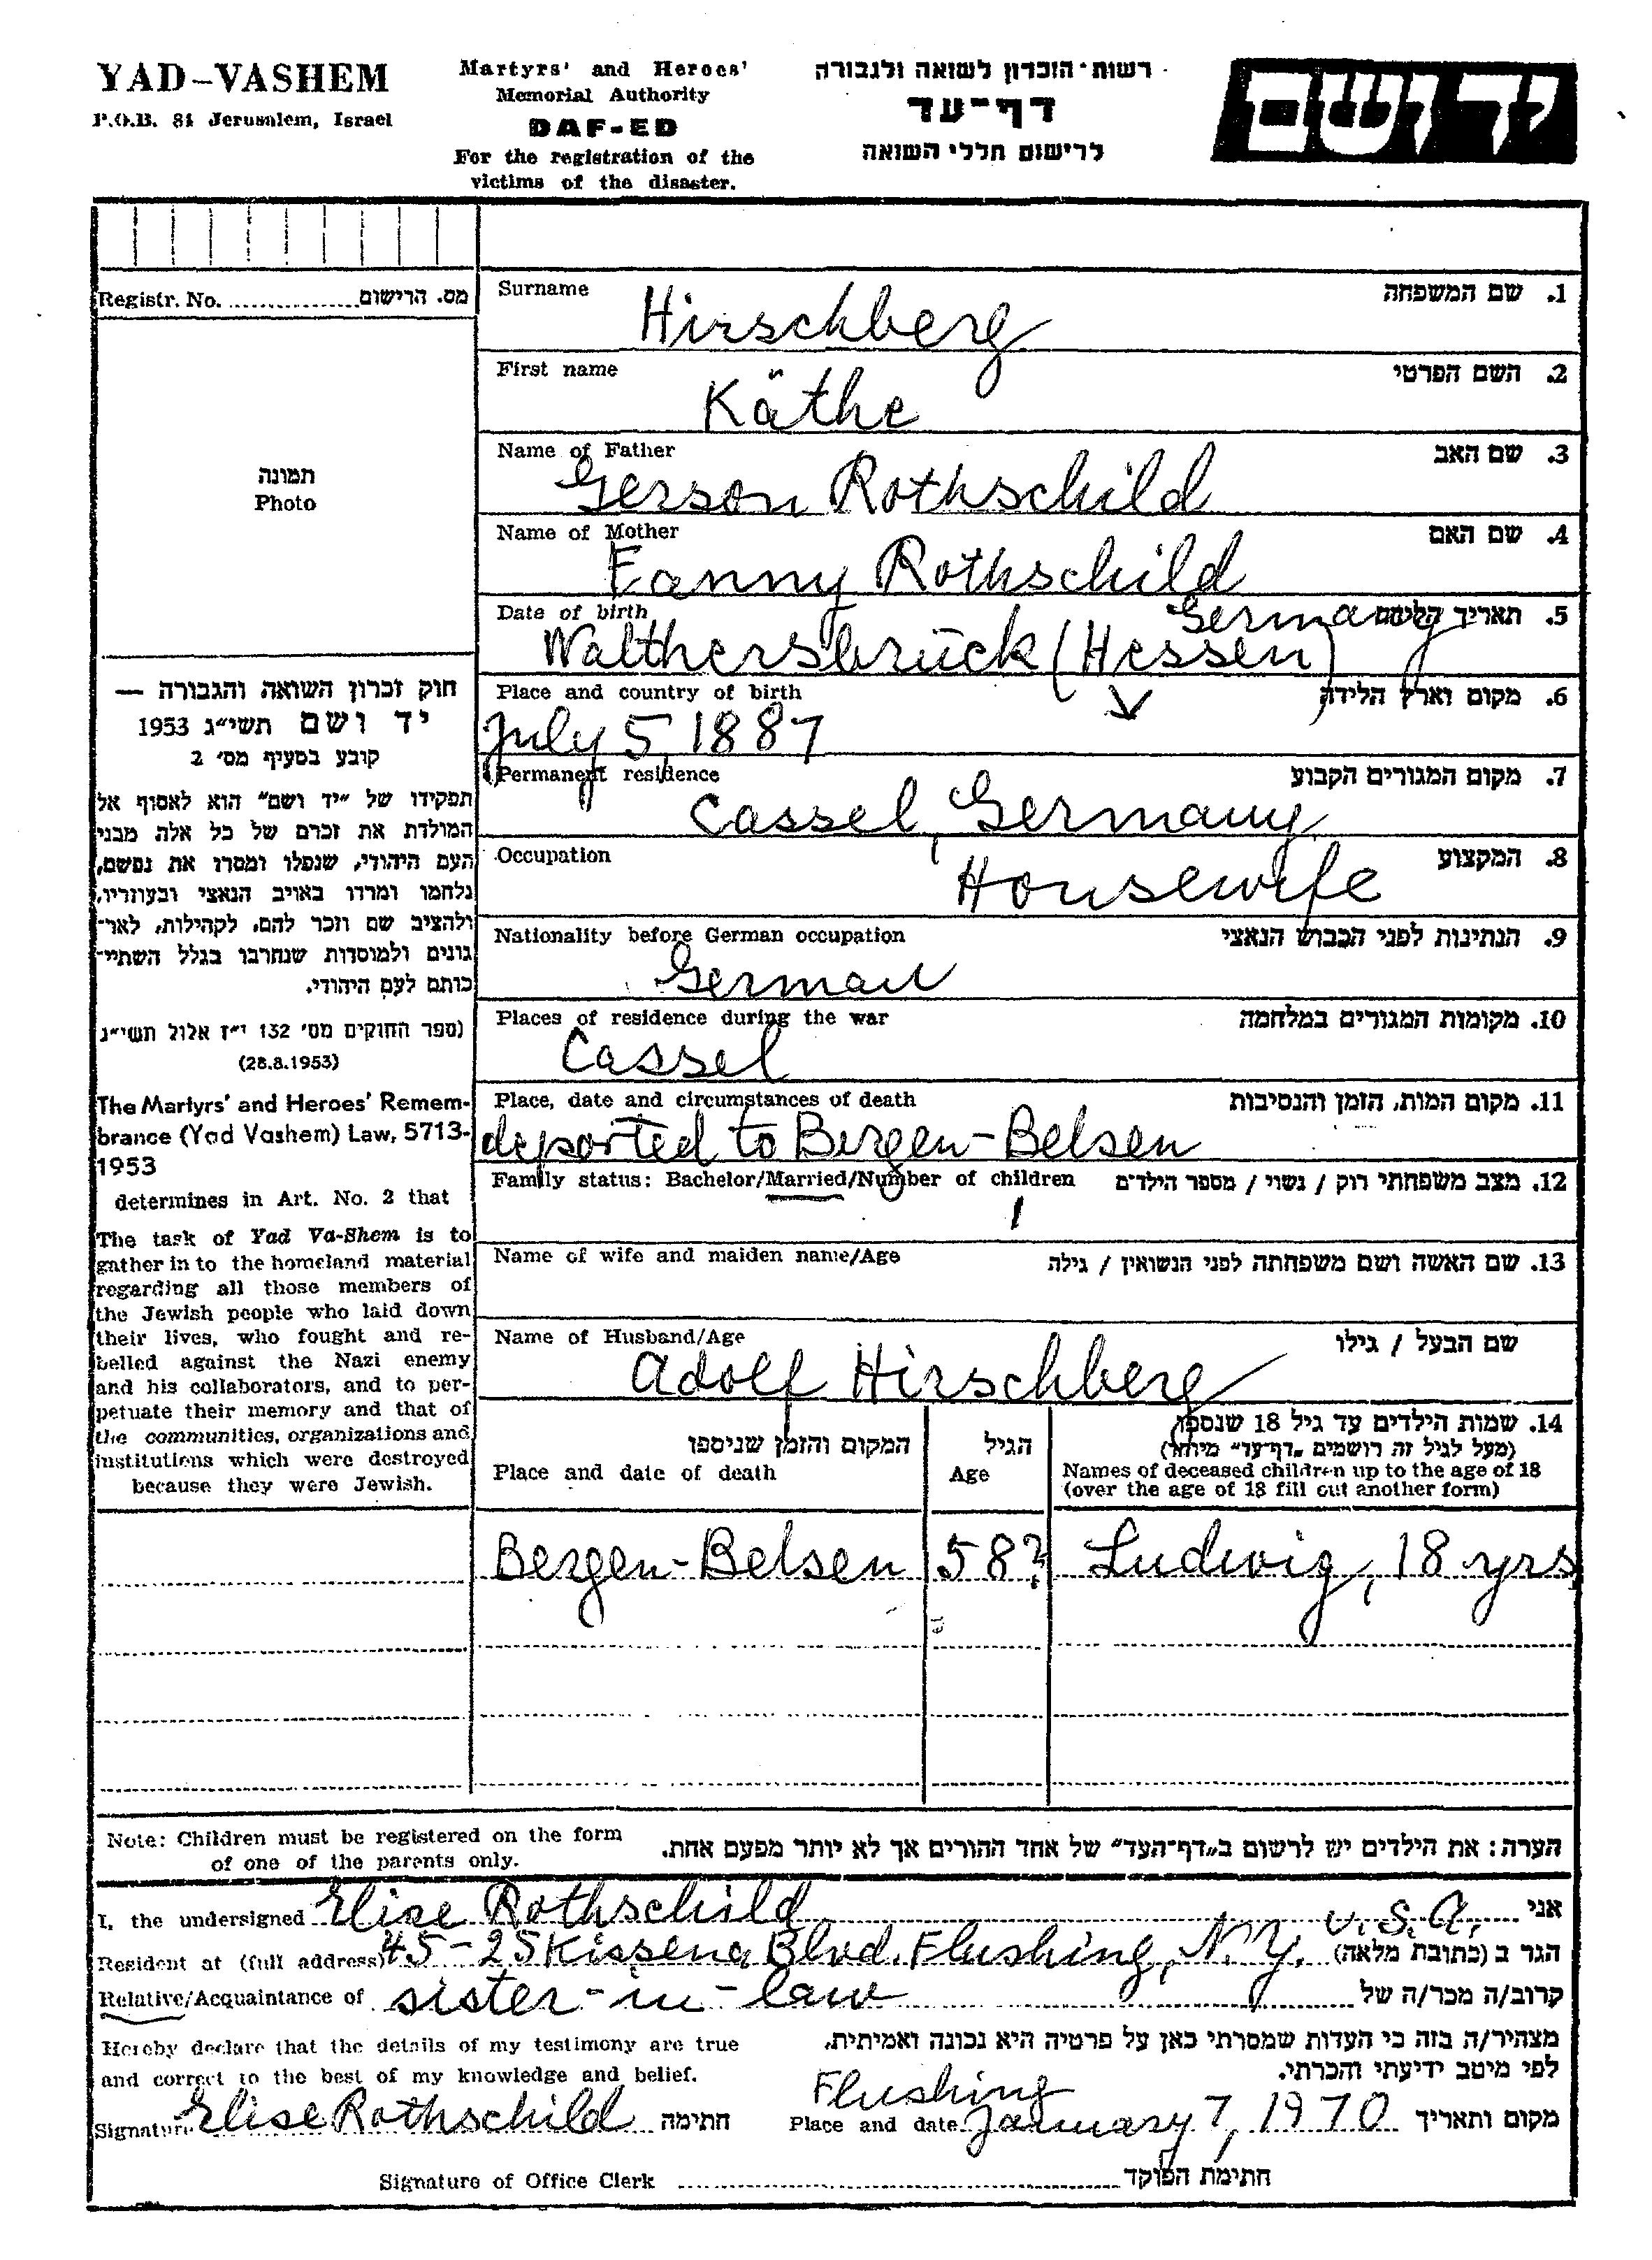 YAD-VASHEM
P.O.B. 84 Jerusalem, Israel
Martyrs' and Heroes'
Memorial Authority
DAF-ED
For the registration of the
victims of the disaster.
רשות-הזכרון לשואה ולגבורה
דף-עד
לרישום חללי השואה
יד ושם
Registr. No. ................ מס. הרישום
תמונה
Photo
חוק זכרון השואה והגבורה —
יד ושם תשי״ג 1953
קובע בסעיף מס׳ 2
תפקידו של ״יד ושם״ הוא לאסוף אל
המולדת את זכרם של כל אלה מבני
העם היהודי, שנפלו ומסרו את נפשם,
נלחמו ומרדו באויב הנאצי ובעוזריו,
ולהציב שם וזכר להם, לקהילות, לאר-
גונים ולמוסדות שנחרבו בגלל השתיי-
כותם לעם היהודי.
(ספר החוקים מס׳ 132 י״ז אלול תשי״ג
(28.8.1953)
The Martyrs' and Heroes' Remem-
brance (Yad Vashem) Law, 5713-
1953
determines in Art. No. 2 that
The task of Yad Va-Shem is to
gather in to the homeland material
regarding all those members of
the Jewish people who laid down
their lives, who fought and re-
belled against the Nazi enemy
and his collaborators, and to per-
petuate their memory and that of
the communities, organizations and
institutions which were destroyed
because they were Jewish.
Surname 1. שם המשפחה
Hirschberg
First name 2. השם הפרטי
Käthe
Name of Father 3. שם האב
Gerson Rothschild
Name of Mother 4. שם האם
Fanny Rothschild
Date of birth 5. תאריך הלידה
Germany
Walthersbrück (Hessen)
Place and country of birth 6. מקום וארץ הלידה
July 5, 1887
Permanent residence 7. מקום המגורים הקבוע
Cassel, Germany
Occupation 8. המקצוע
Housewife
Nationality before German occupation 9. הנתינות לפני הכבוש הנאצי
German
Places of residence during the war 10. מקומות המגורים במלחמה
Cassel
Place, date and circumstances of death 11. מקום המות, הזמן והנסיבות
deported to Bergen-Belsen
Family status: Bachelor/Married/Number of children 12. מצב משפחתי רוק / נשוי / מספר הילדים
1
Name of wife and maiden name/Age 13. שם האשה ושם משפחתה לפני הנשואין / גילה
Name of Husband/Age שם הבעל / גילו
Adolf Hirschberg
המקום והזמן שניספו
Place and date of death
הגיל
Age
14. שמות הילדים עד גיל 18 שנספו
(מעל לגיל זה רושמים ״דף-עד״ מיוחד)
Names of deceased children up to the age of 18
(over the age of 18 fill out another form)
Bergen-Belsen 58? Ludwig, 18 yrs
Note: Children must be registered on the form
of one of the parents only.
הערה: את הילדים יש לרשום ב״דף-העד״ של אחד ההורים אך לא יותר מפעם אחת.
I, the undersigned Elise Rothschild אני
U.S.A.
Resident at (full address) 45-25 Kissena Blvd. Flushing, N.Y. הגר ב (כתובת מלאה)
Relative/Acquaintance of sister-in-law קרוב/ה מכר/ה של
Hereby declare that the details of my testimony are true
and correct to the best of my knowledge and belief.
מצהיר/ה בזה כי העדות שמסרתי כאן על פרטיה היא נכונה ואמיתית,
לפי מיטב ידיעתי והכרתי.
Signature Elise Rothschild חתימה
Flushing
Place and date January 7, 1970 מקום ותאריך
Signature of Office Clerk חתימת הפוקד